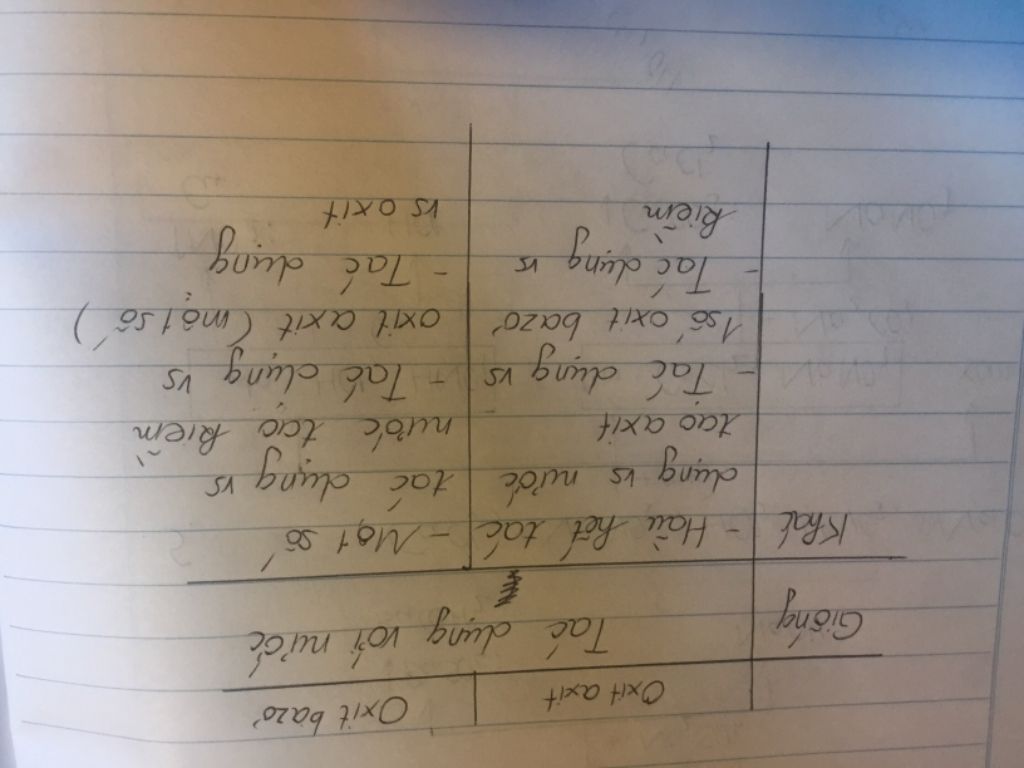 Oxit axit Oxit bazơ
Giống Tác dụng với nước
Khác - Hầu hết tác - Một số
dụng vs nước tác dụng vs
tạo axit nước tạo kiềm
- Tác dụng vs - Tác dụng vs
1 số oxit bazơ oxit axit (một số)
- Tác dụng vs - Tác dụng
kiềm vs oxit